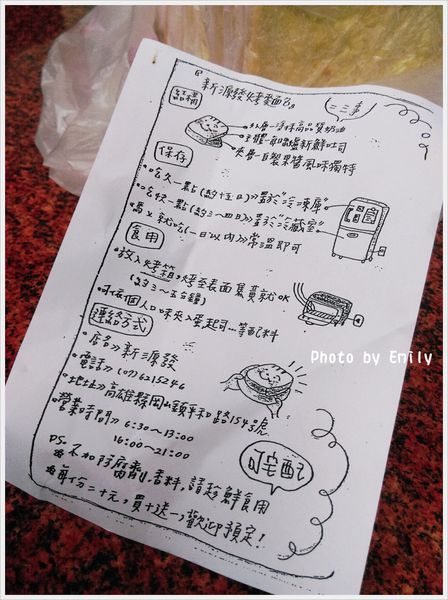 『新源發烤麵包』
二三事
結構
外層-淨保高品質奶油
主體-自製新鮮吐司
夾層-自製果醬風味獨特
保存
・宅久一點(約十五日)»置於"冷凍庫"
・宅快一點(約三~四日)»置於"冷藏室"
・馬ㄨ就吃(一日以內)»常溫即可
食用
・放入烤箱,烤至表面焦黃就OK
(約3~5分鐘)
・可依個人口味夾入蛋起司...等配料
連絡方式
・店名»新源發
・電話»(07)6215246
・地址»高雄縣岡山鎮平和路154號
・營業時間»6:30~13:00
16:00~21:00
可宅配
PS.
不加防腐劑,香料,請趁鮮食用
每份二十元,買十送一,歡迎預定!
Photo by Emily